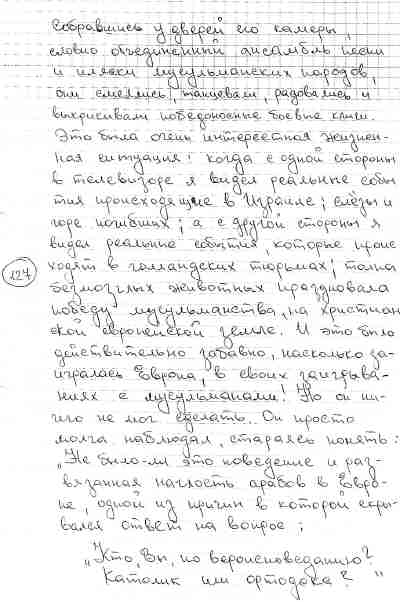 собравшись у дверей его камеры,
словно объединённый ансамбль песни
и пляски мусульманских народов,
они смеялись, танцевали, радовались и
выкрикивали победоносные боевые кличи.
Это была очень интересная жизнен-
ная ситуация! когда с одной стороны
в телевизоре я видел реальные собы
тия происходящие в Израиле; слёзы и
горе погибших; а с другой стороны я
видел реальные события, которые проис
ходят в голландских тюрьмах; толпа
безмозглых животных праздновала
победу мусульманства, на христиан
ской европейской земле. И это было
действительно забавно, насколько за-
игралась Европа, в своих заигрыва-
ниях с мусульманами! Но он ни-
чего не мог сделать. Он просто
молча наблюдал, стараясь понять:
„Не было-ли это поведение и раз-
вязанная наглость арабов в Евро-
пе, одной из причин в которой скры-
вался ответ на вопрос;
„Кто, Вы, по вероисповеданию?
Католик или ортодокс?"
127